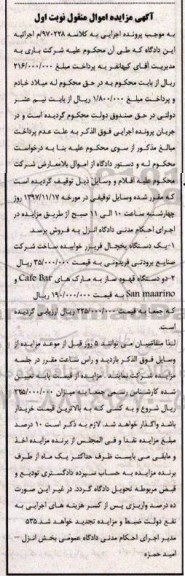 آگهی مزایده اموال منقول نوبت اول
به موجب پرونده اجرایی به کلاسه ۹۷۰۲۲۸/م اجرائیه
این دادگاه که طی آن محکوم علیه شرکت یاری به
مدیریت آقای کیهانفر به پرداخت مبلغ ۲۱۶/۰۰۰/۰۰۰
ریال از بابت محکوم به در حق محکوم له میلاد خادم
و پرداخت مبلغ ۱/۸۰۰/۰۰۰ ریال از بابت نیم عشر
دولتی در حق صندوق دولت محکوم گردیده است و در
جریان پرونده اجرایی فوق الذکر به علت عدم پرداخت
مبالغ مذکور از سوی محکوم علیه بنا به درخواست
محکوم له و دستور دادگاه از اموال بلامعارض شرکت
محکوم علیه اقلام و وسایل ذیل توقیف گردیده است
که مقرر شده وسایل توقیفی در مورخه ۱۳۹۷/۱۱/۱۷ روز
چهارشنبه ساعت ۱۰ الی ۱۱ صبح از طریق مزایده در
اجرای احکام مدنی دادگاه انزل به فروش برسد.
۱-یک دستگاه یخچال فریزر خوابیده ساخت شرکت
صنایع برودتی فریدونی به قیمت ۳۵/۰۰۰/۰۰۰ ریال
۲-دو دستگاه قهوه ساز به مارک های Cafe Bar و
San maarino به قیمت ۱۹۰/۰۰۰/۰۰۰ ریال
که جمعا به قیمت ۲۲۵/۰۰۰/۰۰۰ ریال ارزیابی گردیده
است.
لذا متقاضیان می توانند ۵ روز قبل از موعد مزایده از
وسایل فوق الذکر بازدید و راس ساعت مقرر در جلسه
مزایده شرکت نمایند. مزایده از قیمت پایه تعیین
شده کارشناس رسمی جمعا به میزان ۲۲۵/۰۰۰/۰۰۰
ریال شروع و به کسی که به بالاترین قیمت خریدار
باشد واگذار خواهد شد. لازم به ذکر است ۱۰ درصد
مبلغ مزایده نقدا و فی المجلس از برنده مزایده اخذ
و مابقی می بایست ظرف حداکثر یک ماه از طرف
برنده مزایده به حساب سپرده دادگستری تودیع و
قبض مربوطه تحویل دادگاه گردد. در غیر این صورت
ده درصد واریزی پس از کسر هزینه های اجرایی به
نفع دولت ضبط و مزایده تجدید خواهد شد. ۵۳۵
مدیر اجرای احکام مدنی دادگاه عمومی بخش انزل –
امید حمزه